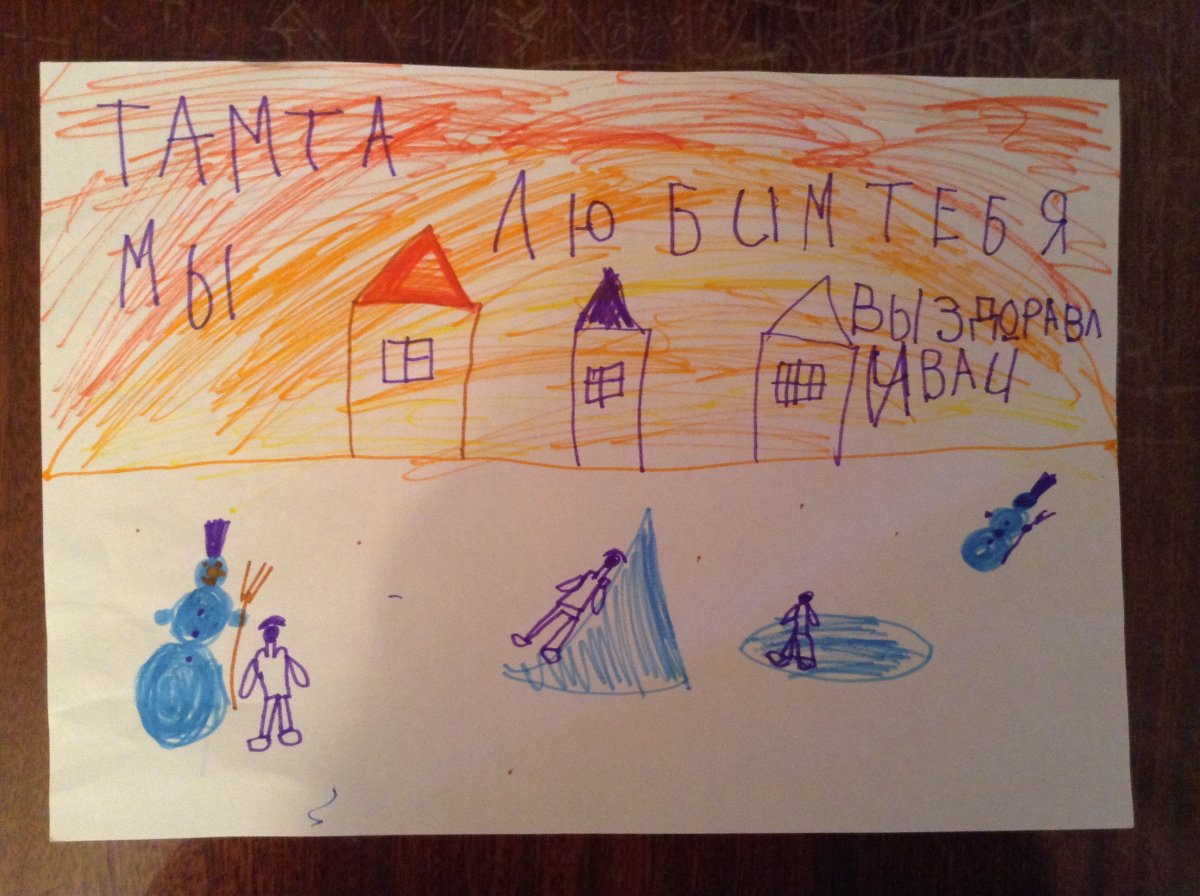 ТАМТА
МЫ ЛЮБИМ ТЕБЯ
ВЫЗДОРАВЛ
ИВАЙ